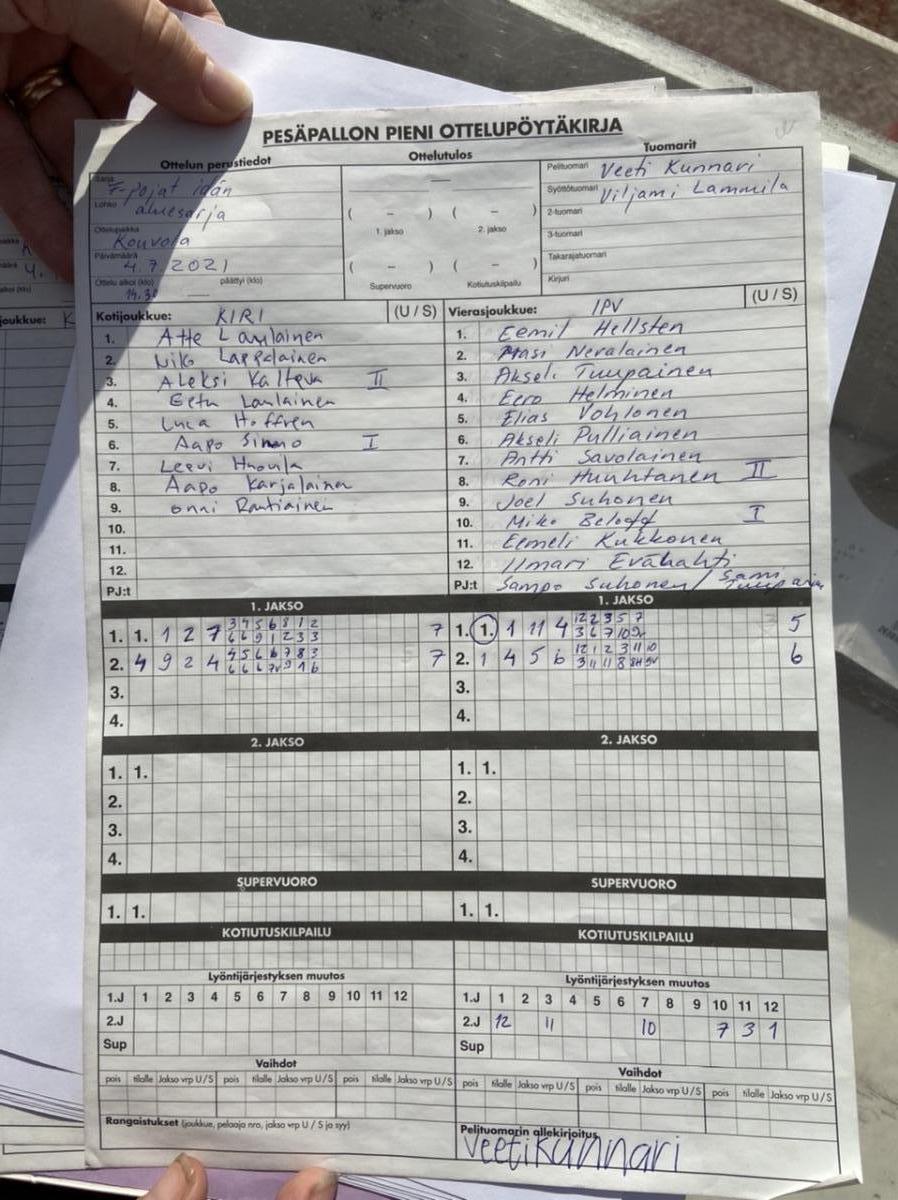 PESÄPALLON PIENI OTTELUPÖYTÄKIRJA
Ottelun perustiedot
Ottelutulos
Tuomarit
Sarja F-pojat idän
Lohko aluesarja
Ottelupaikka Kouvola
Päivämäärä 4.7.2021
Ottelu alkoi (klo) päättyi (klo)
14.30 —
—
( – ) ( – )
1. jakso 2. jakso
( – ) ( – )
Supervuoro Kotiutuskilpailu
Pelituomari Veeti Kunnari
Syöttötuomari Viljami Lammila
2-tuomari
3-tuomari
Takarajatuomari
Kirjuri
Kotijoukkue: KIRI (U / S)
1. Atte Laulainen
2. Niko Lappalainen
3. Aleksi Kalteva II
4. Eetu Laulainen
5. Luca Hoffren
6. Aapo Simo I
7. Leevi
8. Aapo Karjalainen
9. Onni Rautiainen
10.
11.
12.
PJ:t
Vierasjoukkue: IPV (U / S)
1. Eemil Hellsten
2. Masi Nevalainen
3. Akseli Tuupainen
4. Eero Helminen
5. Elias Vohlonen
6. Akseli Pulliainen
7. Antti Savolainen
8. Roni Huuhtanen II
9. Joel Suhonen
10. Miko Beloff I
11. Eemeli Kukkonen
12. Ilmari Evälahti
PJ:t Sampo Suhonen / Sami
1. JAKSO
3 4 5 6 8 1 2
1. 1. 1 2 7 6 6 9 1 2 3 3 7
4 5 6 6 7 8 3
2. 4 9 2 4 7
3.
4.
1. JAKSO
12 2 3 5 7
1. 1. 1 11 4 3 6 7 10 5
12 1 2 3 11 10
2. 1 4 5 6 3 11 11 8 6
3.
4.
2. JAKSO
1. 1.
2.
3.
4.
2. JAKSO
1. 1.
2.
3.
4.
SUPERVUORO
1. 1.
SUPERVUORO
1. 1.
KOTIUTUSKILPAILU
KOTIUTUSKILPAILU
Lyöntijärjestyksen muutos
1.J 1 2 3 4 5 6 7 8 9 10 11 12
2.J
Sup
Lyöntijärjestyksen muutos
1.J 1 2 3 4 5 6 7 8 9 10 11 12
2.J 12 11 10 7 3 1
Sup
Vaihdot
pois tilalle Jakso vrp U/S pois tilalle Jakso vrp U/S pois tilalle Jakso vrp U/S
Vaihdot
pois tilalle Jakso vrp U/S pois tilalle Jakso vrp U/S pois tilalle Jakso vrp U/S
Rangaistukset (joukkue, pelaaja nro, jakso vrp U / S ja syy)
Pelituomarin allekirjoitus
Veeti Kunnari